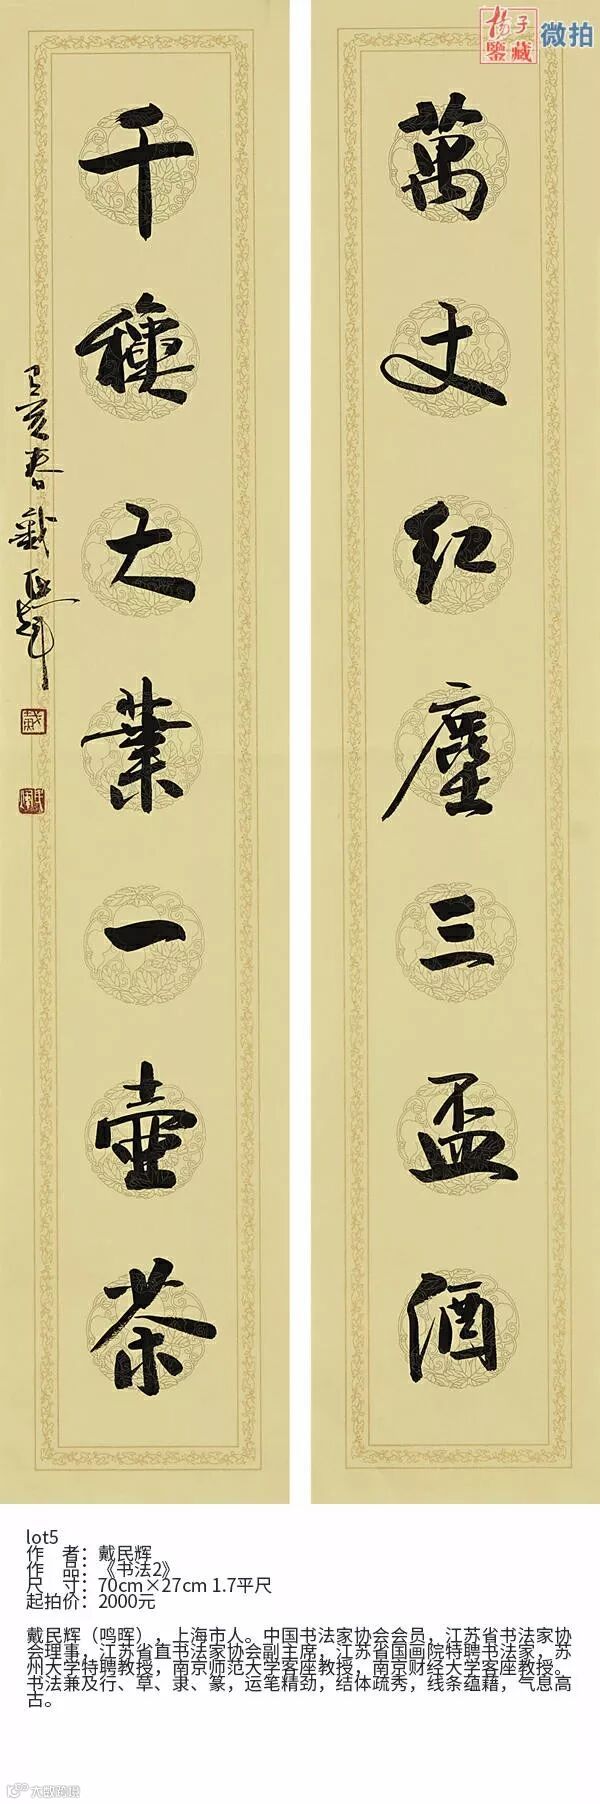 杨子
鉴藏
微拍
萬丈紅塵三盃酒
千種大業一壺茶
己亥春戴民輝
lot5
作 者：戴民辉
作 品：《书法2》
尺 寸：70cm×27cm 1.7平尺
起拍价：2000元
戴民辉（鸣晖），上海市人。中国书法家协会会员，江苏省书法家协
会理事，江苏省直书法家协会副主席，江苏省国画院特聘书法家，苏
州大学特聘教授，南京师范大学客座教授，南京财经大学客座教授。
书法兼及行、草、隶、篆，运笔精劲，结体疏秀，线条蕴藉，气息高
古。
大数跨境